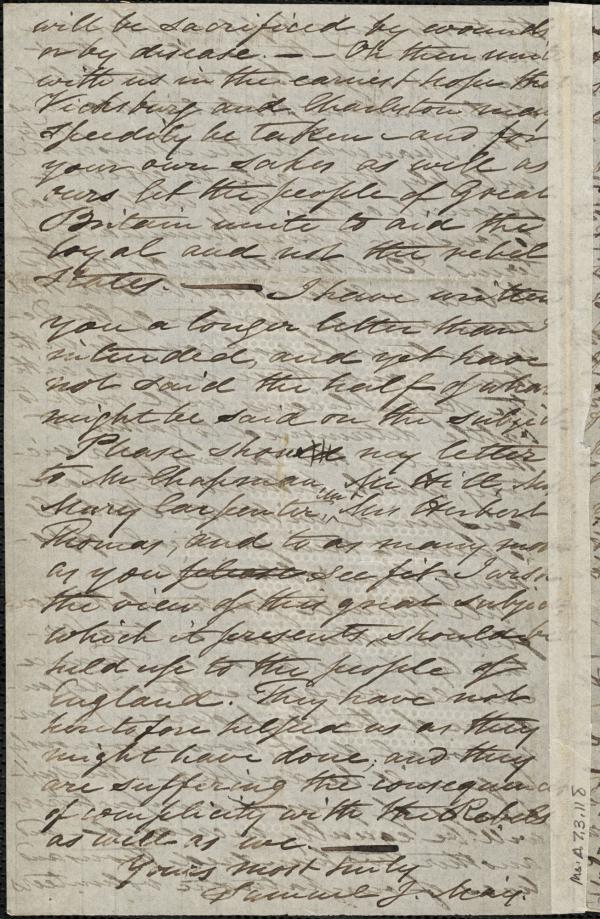 will be sacrificed by wounds
or by disease. — — Oh then unite
with us in the earnest hope that
Vicksburg and Charleston may
speedily be taken – and for
your own sakes as well as
ours let the people of Great
Britain unite to aid the
loyal and not the rebel
States. — I have written
you a longer letter than I
intended, and yet have
not said the half of what
might be said on the subject
Please show my letter
to Mr Chapman, Mr Hill, Miss
Mary Carpenter, Mrs Herbert
Thomas, and to as many more
as you please see fit. I wish
the view of this great subject
which it presents, should be
held up to the people of
England. They have not
heretofore helped us as they
might have done, and they
are suffering the consequence
of complicity with the Rebels
as well as we. —
Yours most truly
Samuel J. May.
Ms. A.7.3.118